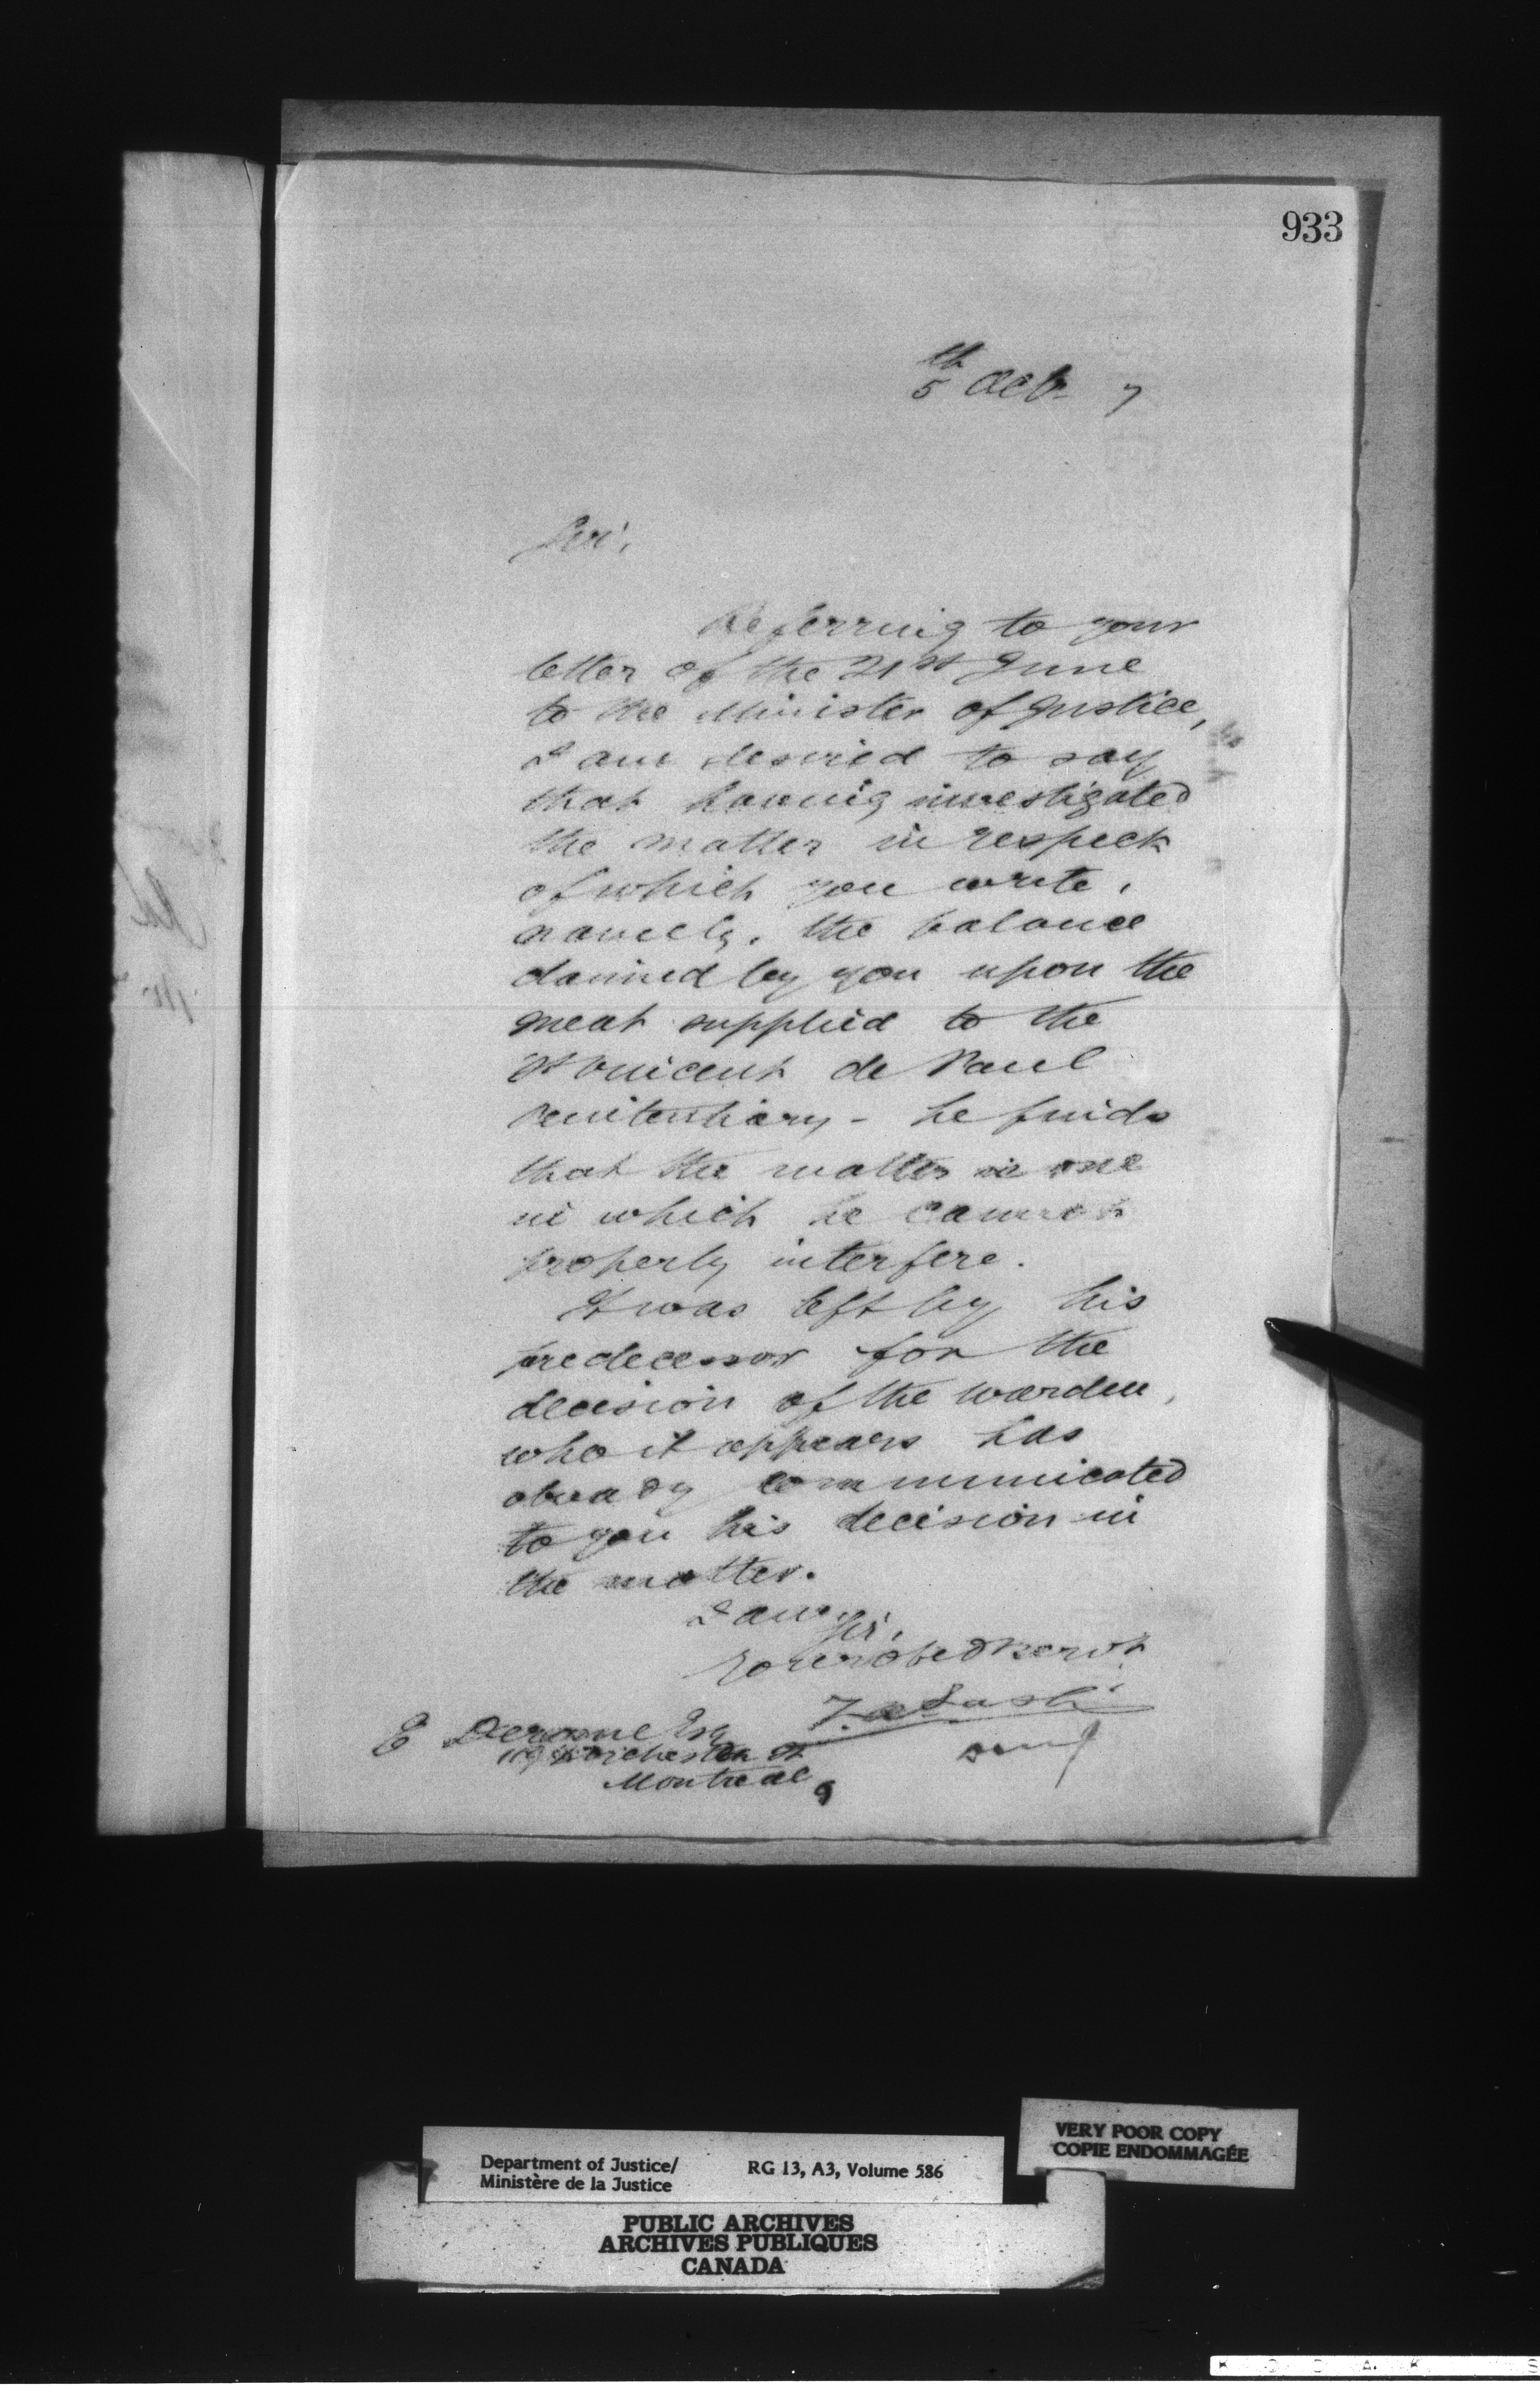 933
5th Octr 7
Sir,
Referring to your
letter of the 21st June
to the Minister of Justice,
I am desired to say
that having investigated
the matter in respect
of which you write,
namely, the balance
claimed by you upon the
meat supplied to the
St Vincent de Paul
Penitentiary - he finds
that the matter is one
in which he cannot
properly interfere.
It was left by his
predecessor for the
decision of the Warden,
who it appears has
already communicated
to you his decision in
the matter.
I am Sir,
Your obed servt
Z. A. Lash
E Derome Esq
Dorchester St
Montreal
Department of Justice/
Ministère de la Justice
RG 13, A3, Volume 586
VERY POOR COPY
COPIE ENDOMMAGÉE
PUBLIC ARCHIVES
ARCHIVES PUBLIQUES
CANADA
K O D A K S